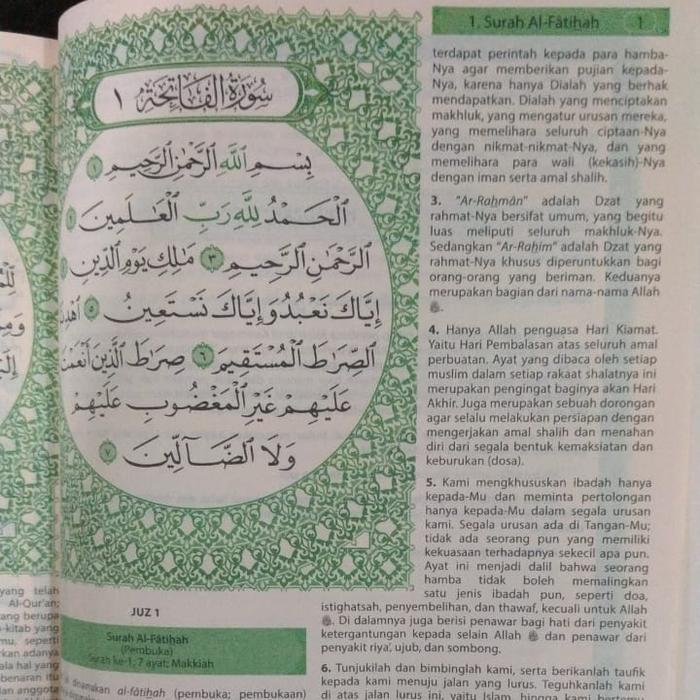 yang telah
Al-Qur'an;
berupa
yang
seperti
adanya
hal yang
itu
anggota
سُورَةُ الْفَاتِحَةِ ١
بِسْمِ اللَّهِ الرَّحْمَٰنِ الرَّحِيمِ ١
الْحَمْدُ لِلَّهِ رَبِّ الْعَالَمِينَ
الرَّحْمَٰنِ الرَّحِيمِ ٣ مَالِكِ يَوْمِ الدِّينِ
إِيَّاكَ نَعْبُدُ وَإِيَّاكَ نَسْتَعِينُ ٥
الصِّرَاطَ الْمُسْتَقِيمَ ٦ صِرَاطَ الَّذِينَ أَنْعَمْتَ
عَلَيْهِمْ غَيْرِ الْمَغْضُوبِ عَلَيْهِمْ
وَلَا الضَّالِّينَ ٧
JUZ 1
Surah Al-Fâtiẖah
(Pembuka)
Surah ke-1, 7 ayat; Makkiah
dinamakan al-fâtiẖah (pembuka; pembukaan)
1. Surah Al-Fâtiẖah 1
terdapat perintah kepada para hamba-
Nya agar memberikan pujian kepada-
Nya, karena hanya Dialah yang berhak
mendapatkan. Dialah yang menciptakan
makhluk, yang mengatur urusan mereka,
yang memelihara seluruh ciptaan-Nya
dengan nikmat-nikmat-Nya, dan yang
memelihara para wali (kekasih)-Nya
dengan iman serta amal shalih.
3. "Ar-Raẖmân" adalah Dzat yang
rahmat-Nya bersifat umum, yang begitu
luas meliputi seluruh makhluk-Nya.
Sedangkan "Ar-Raẖîm" adalah Dzat yang
rahmat-Nya khusus diperuntukkan bagi
orang-orang yang beriman. Keduanya
merupakan bagian dari nama-nama Allah
.
4. Hanya Allah penguasa Hari Kiamat.
Yaitu Hari Pembalasan atas seluruh amal
perbuatan. Ayat yang dibaca oleh setiap
muslim dalam setiap rakaat shalatnya ini
merupakan pengingat baginya akan Hari
Akhir. Juga merupakan sebuah dorongan
agar selalu melakukan persiapan dengan
mengerjakan amal shalih dan menahan
diri dari segala bentuk kemaksiatan dan
keburukan (dosa).
5. Kami mengkhususkan ibadah hanya
kepada-Mu dan meminta pertolongan
hanya kepada-Mu dalam segala urusan
kami. Segala urusan ada di Tangan-Mu;
tidak ada seorang pun yang memiliki
kekuasaan terhadapnya sekecil apa pun.
Ayat ini menjadi dalil bahwa seorang
hamba tidak boleh memalingkan
satu jenis ibadah pun, seperti doa,
istighatsah, penyembelihan, dan thawaf, kecuali untuk Allah
. Di dalamnya juga berisi penawar bagi hati dari penyakit
ketergantungan kepada selain Allah dan penawar dari
penyakit riya', ujub, dan sombong.
6. Tunjukilah dan bimbinglah kami, serta berikanlah taufik
kepada kami menuju jalan yang lurus. Teguhkanlah kami
di atas jalan lurus ini, yaitu Islam, hingga kami bertemu